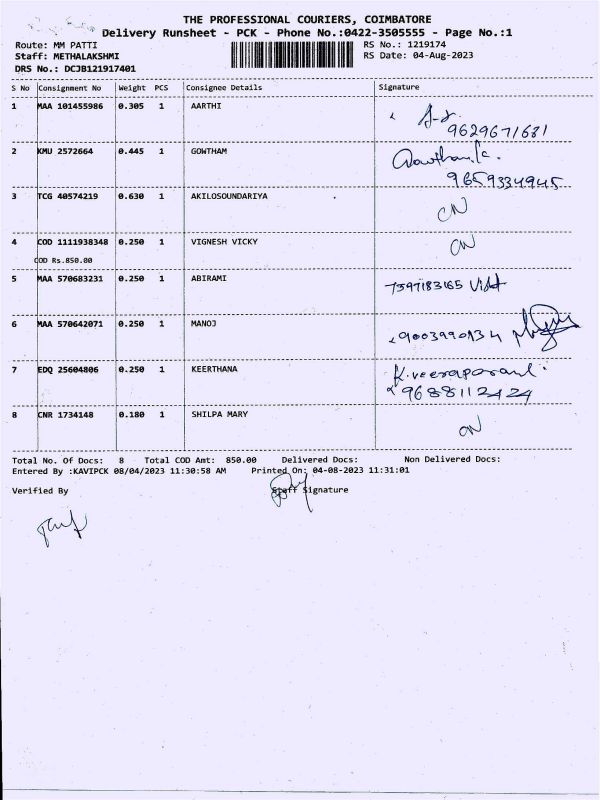 THE PROFESSIONAL COURIERS, COIMBATORE
Delivery Runsheet - PCK - Phone No.:0422-3505555 - Page No.:1
Route: MM PATTI RS No.: 1219174
Staff: METHALAKSHMI RS Date: 04-Aug-2023
DRS No.: DCJB121917401
S No Consignment No Weight PCS Consignee Details Signature
1 MAA 101455986 0.305 1 AARTHI
9629671681
2 KMU 2572664 0.445 1 GOWTHAM Gowtham.K.
9659334945
3 TCG 40574219 0.630 1 AKILOSOUNDARIYA CN
4 COD 1111938348 0.250 1 VIGNESH VICKY CN
COD Rs.850.00
5 MAA 570683231 0.250 1 ABIRAMI 7597183165
6 MAA 570642071 0.250 1 MANOJ 9003990134
7 EDQ 25604806 0.250 1 KEERTHANA
9688112424
8 CNR 1734148 0.180 1 SHILPA MARY CN
Total No. Of Docs: 8 Total COD Amt: 850.00 Delivered Docs: Non Delivered Docs:
Entered By :KAVIPCK 08/04/2023 11:30:58 AM Printed On: 04-08-2023 11:31:01
Verified By Staff Signature